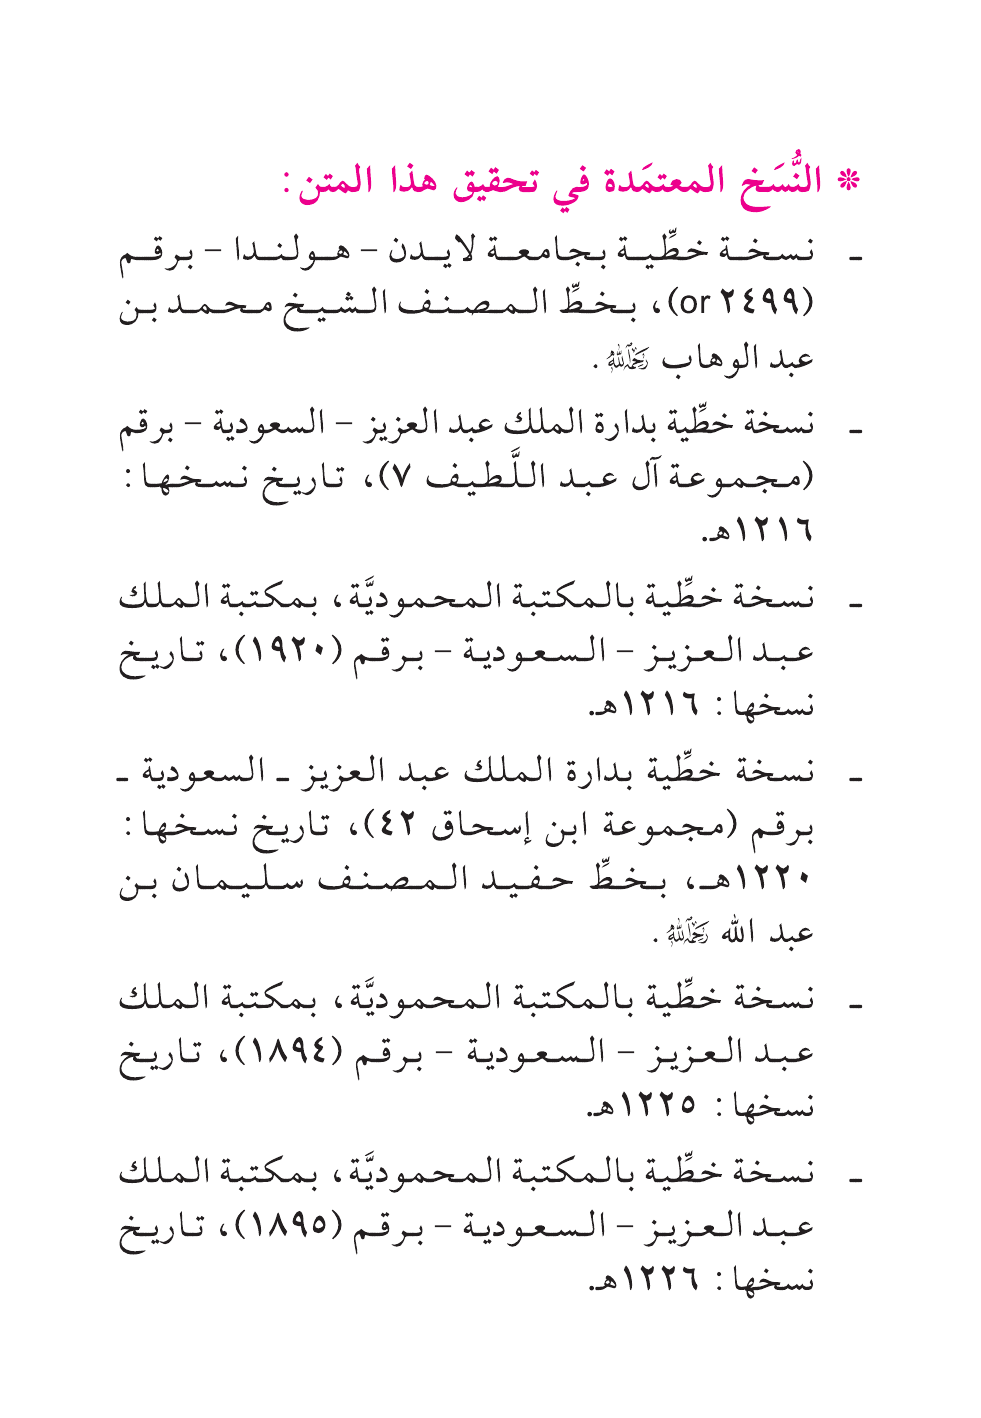 ❊ النُّسَخ المعتمَدة في تحقيق هذا المتن:
ـ نسخة خطِّية بجامعة لايدن – هولندا – برقم
(or ٢٤٩٩)، بخطِّ المصنف الشيخ محمد بن
عبد الوهاب رحمه الله.
ـ نسخة خطِّية بدارة الملك عبد العزيز – السعودية – برقم
(مجموعة آل عبد اللَّطيف ٧)، تاريخ نسخها:
١٢١٦هـ.
ـ نسخة خطِّية بالمكتبة المحموديَّة، بمكتبة الملك
عبد العزيز – السعودية – برقم (١٩٢٠)، تاريخ
نسخها: ١٢١٦هـ.
ـ نسخة خطِّية بدارة الملك عبد العزيز ـ السعودية ـ
برقم (مجموعة ابن إسحاق ٤٢)، تاريخ نسخها:
١٢٢٠هـ، بخطِّ حفيد المصنف سليمان بن
عبد الله رحمه الله.
ـ نسخة خطِّية بالمكتبة المحموديَّة، بمكتبة الملك
عبد العزيز – السعودية – برقم (١٨٩٤)، تاريخ
نسخها: ١٢٢٥هـ.
ـ نسخة خطِّية بالمكتبة المحموديَّة، بمكتبة الملك
عبد العزيز – السعودية – برقم (١٨٩٥)، تاريخ
نسخها: ١٢٢٦هـ.